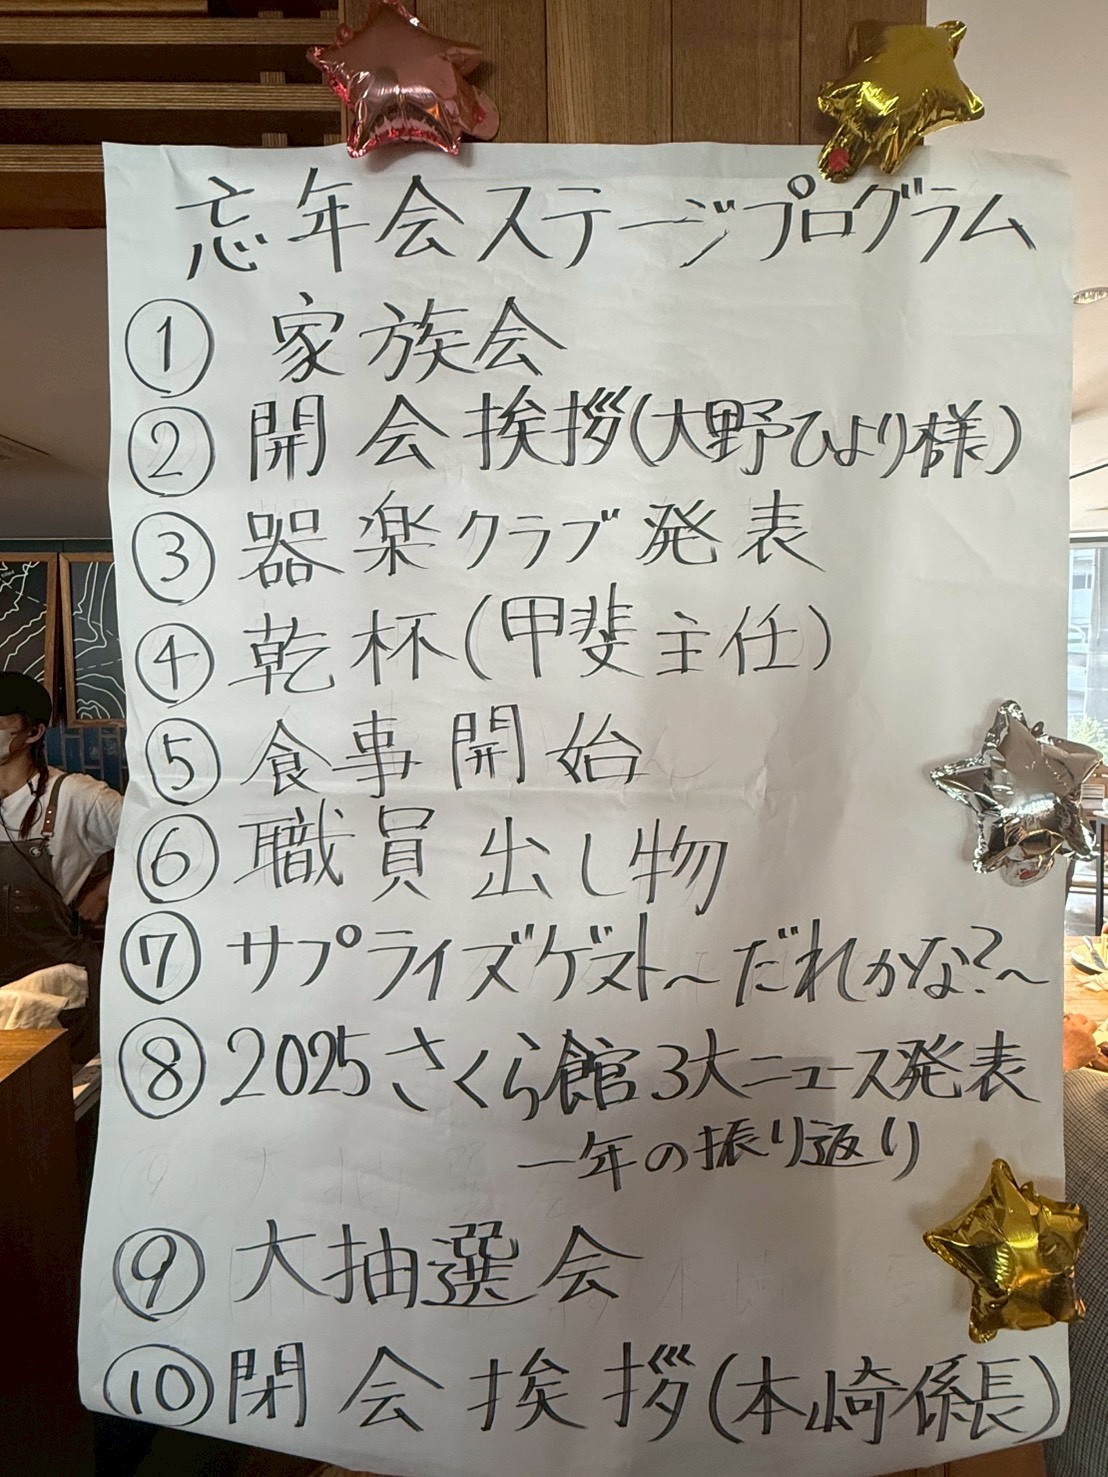 忘年会ステージプログラム
① 家族会
② 開会挨拶(大野ひより様)
③ 器楽クラブ発表
④ 乾杯(甲斐主任)
⑤ 食事開始
⑥ 職員出し物
⑦ サプライズゲスト～だれかな?～
⑧ 2025さくら館3大ニュース発表
一年の振り返り
⑨ 大抽選会
⑩ 閉会挨拶(本崎係長)